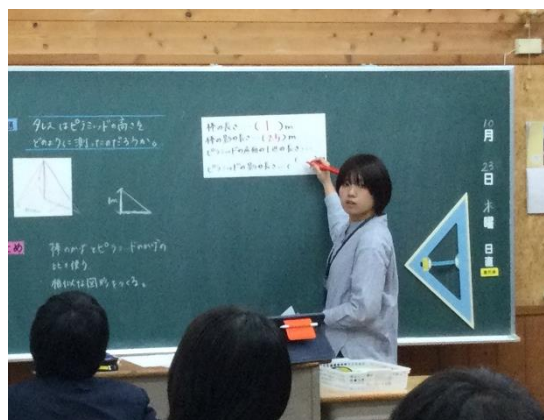 タレスはピラミッドの高さを
どのように測ったのだろうか。
棒の長さ (1)m
棒の影の長さ (1.5)m
ピラミッドの底面の1辺の長さ…
ピラミッドの影の長さ…(
め
棒のかげとピラミッドのかげの
比を使う
相似な図形をつくる。
10
月
23
日
木
曜
日
直